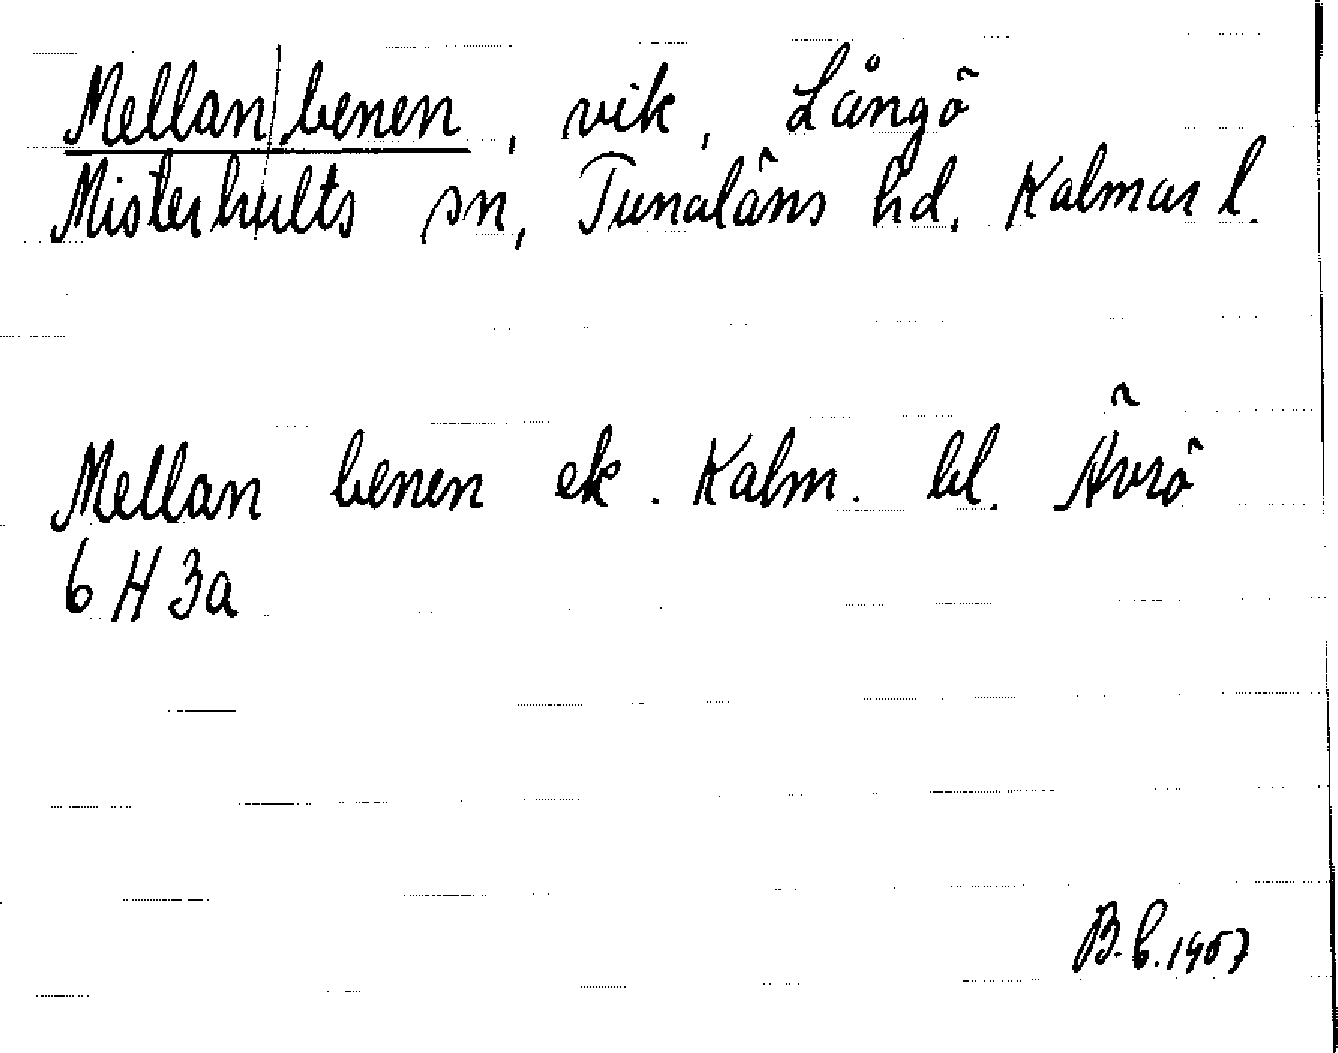 Mellan|benen, vik, Långö
Misterhults sn, Tunaläns hd. Kalmar l.
Mellan benen ek. Kalm. bl. Ävrö
6 H 3a
B. b. 1957